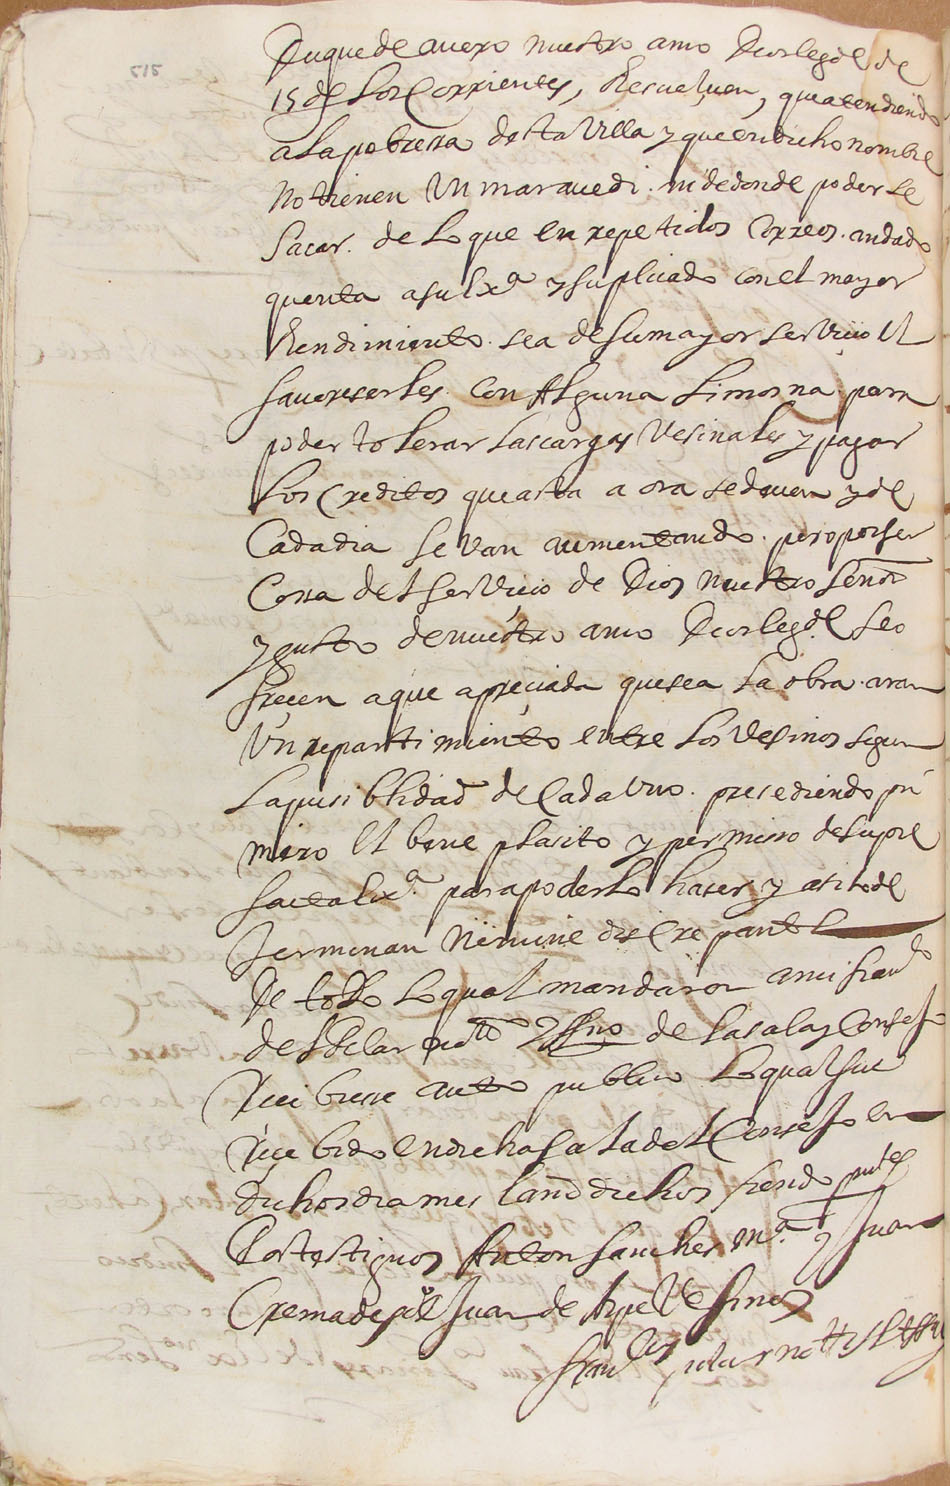 Duque de avero nuestro amo Dios le gde de
15 de los Corrientes, Resuelven, que atendiendo
a la pobresa desta Villa y que en dicho nombre
no tienen Un maravedi. ni de donde poderse
sacar. de lo que en repetidos Correos. an dado
quenta a su Exa y suplicado con el mayor
Rendimiento. sea de su mayor servicio el
favoreserles con Alguna Limosna para
poder tolerar las cargas Vesinales y pagar
los Creditos que asta a ora se deven y de
Cada dia se van aumentando. pero por ser
Cossa del servicio de Dios nuestro señor
y gusto de nuestro amo Dios le gde. se o
frecen a que apreciada que sea la obra. aran
Un repartimiento entre los vesinos segun
la pusiblidad de Cada Uno. presediendo pri
mero el bene plasito y permisso de su
Exa. para poderlo haser y assi lo de
terminan Nemine discrepante
De todo lo qual mandaron a mi
de la sala y Consejo
Recibiese auto publico Lo qual fue
Recebido en dicha sala del Consejo en
dichos dia mes i año dichos siendo pntes
Por testigos Anton Sanches Ma. y Juan
Cremades i Juan de Aspe Vesinos